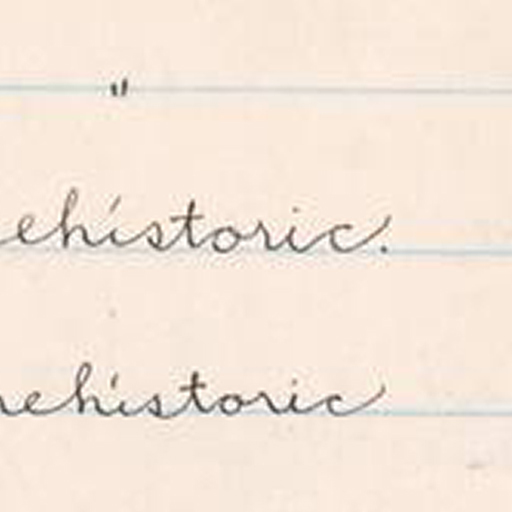 "
ehistoric.
rehistoric